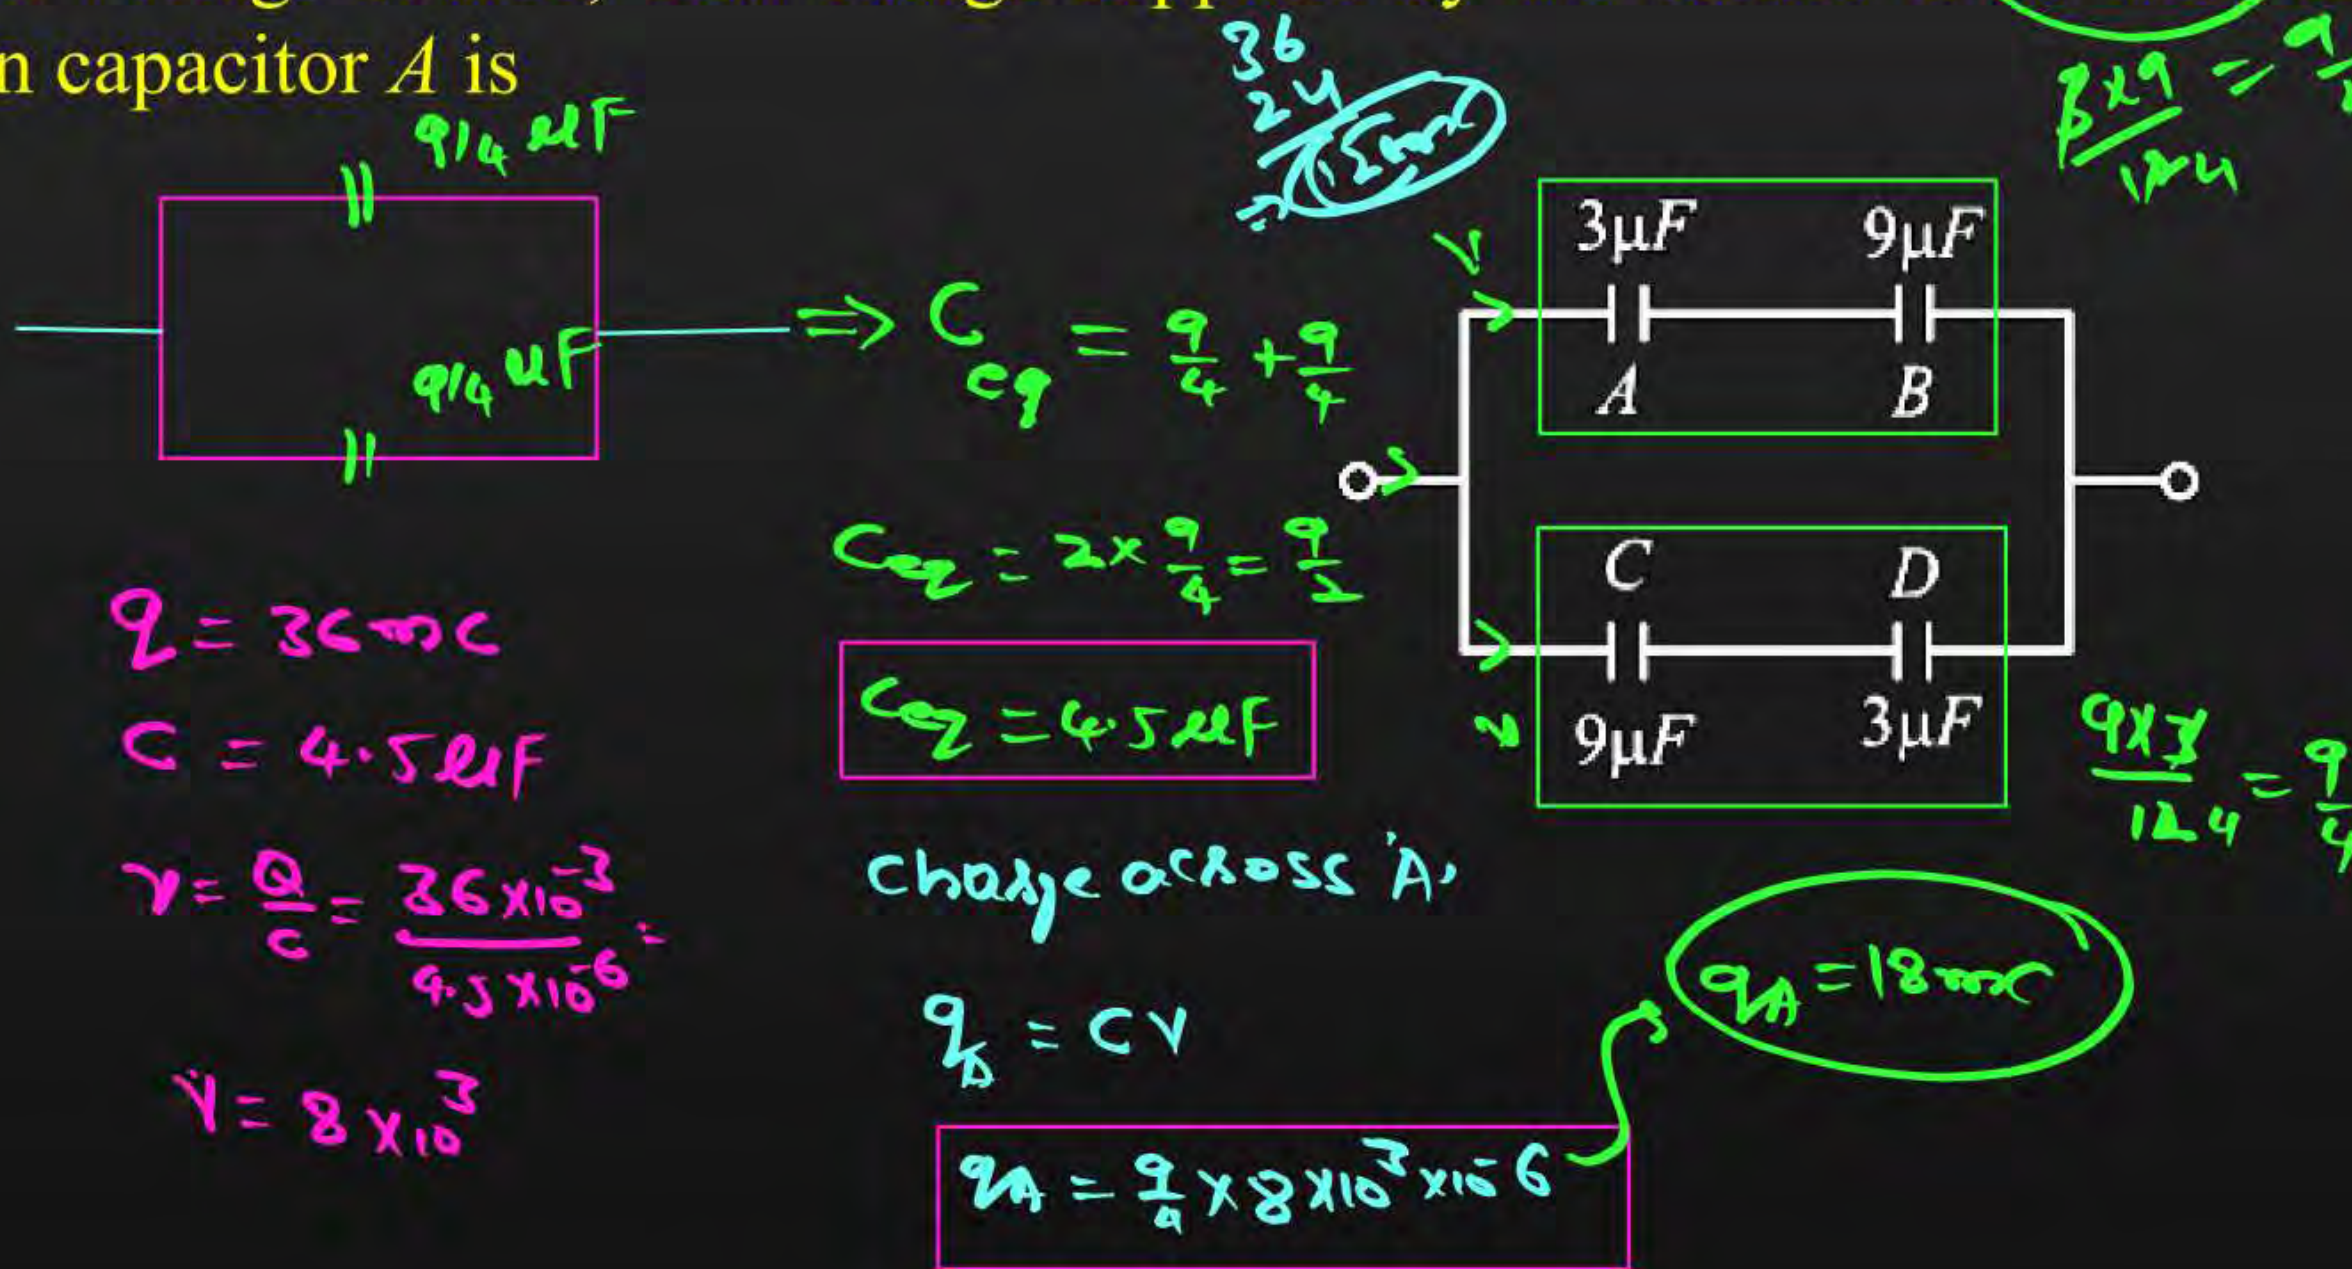 n capacitor A is
9/4 µF
9/4 µF
⇒ C eq = 9/4 + 9/4
Ceq = 2 × 9/4 = 9/2
Ceq = 4.5 µF
q = 36 mC
C = 4.5 µF
V = Q/C = 36 × 10^-3 / 4.5 × 10^-6 =
V = 8 × 10^3
charge across 'A'
q_A = CV
q_A = 9/4 × 8 × 10^3 × 10^-6
q_A = 18 mC
36
3 × 9 / 12 4 = 9
V
3µF 9µF
A B
C D
9µF 3µF
9 × 3 / 12 4 = 9/4